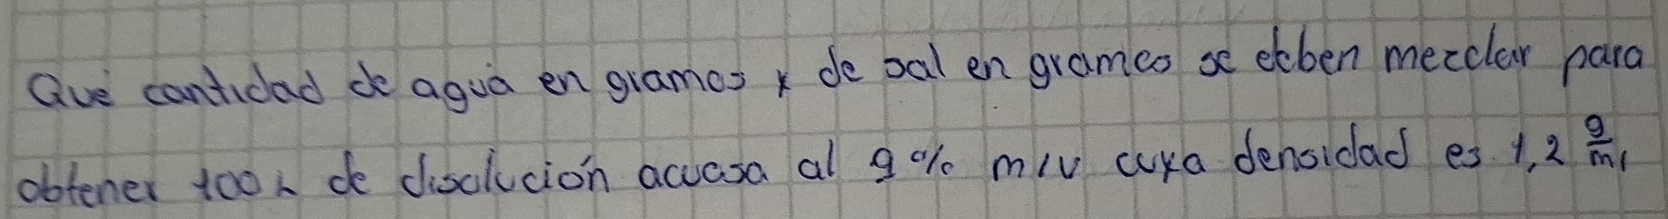 Que cantidad de agua en gramos y de sal en gramos se deben mezclar para
obtener 100 L de disolución acuosa al 9% m/v cuya densidad es 1,2 g/ml